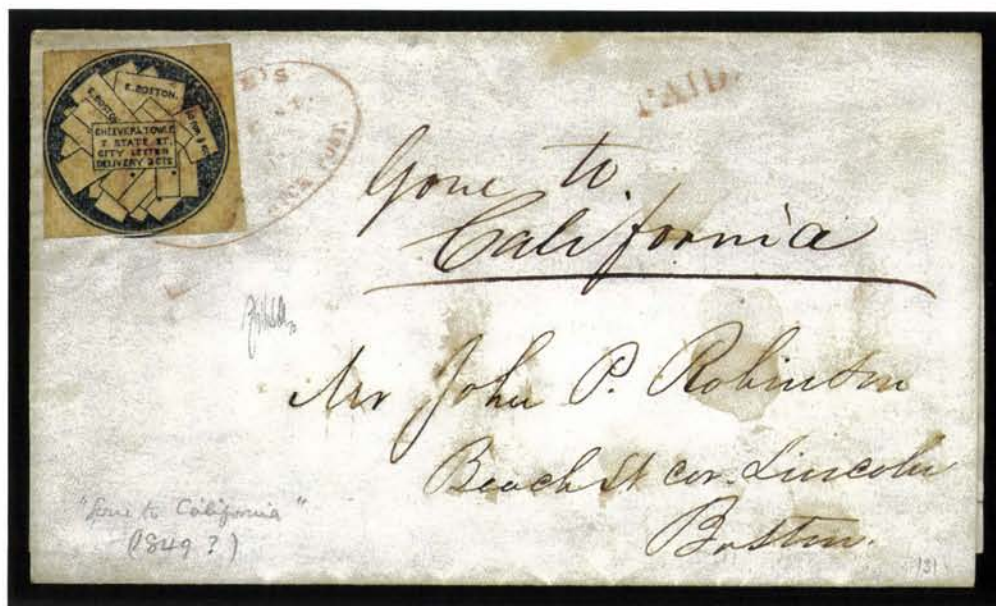 E. BOSTON.
E. BOSTON
CHEEVER & TOWLE
7 STATE ST.
CITY LETTER
DELIVERY 2 CTS
PAID.
Gone to
California
Mr John P. Robinson
Beach St cor. Lincoln
Boston.
"Gone to California"
(1849?)
131